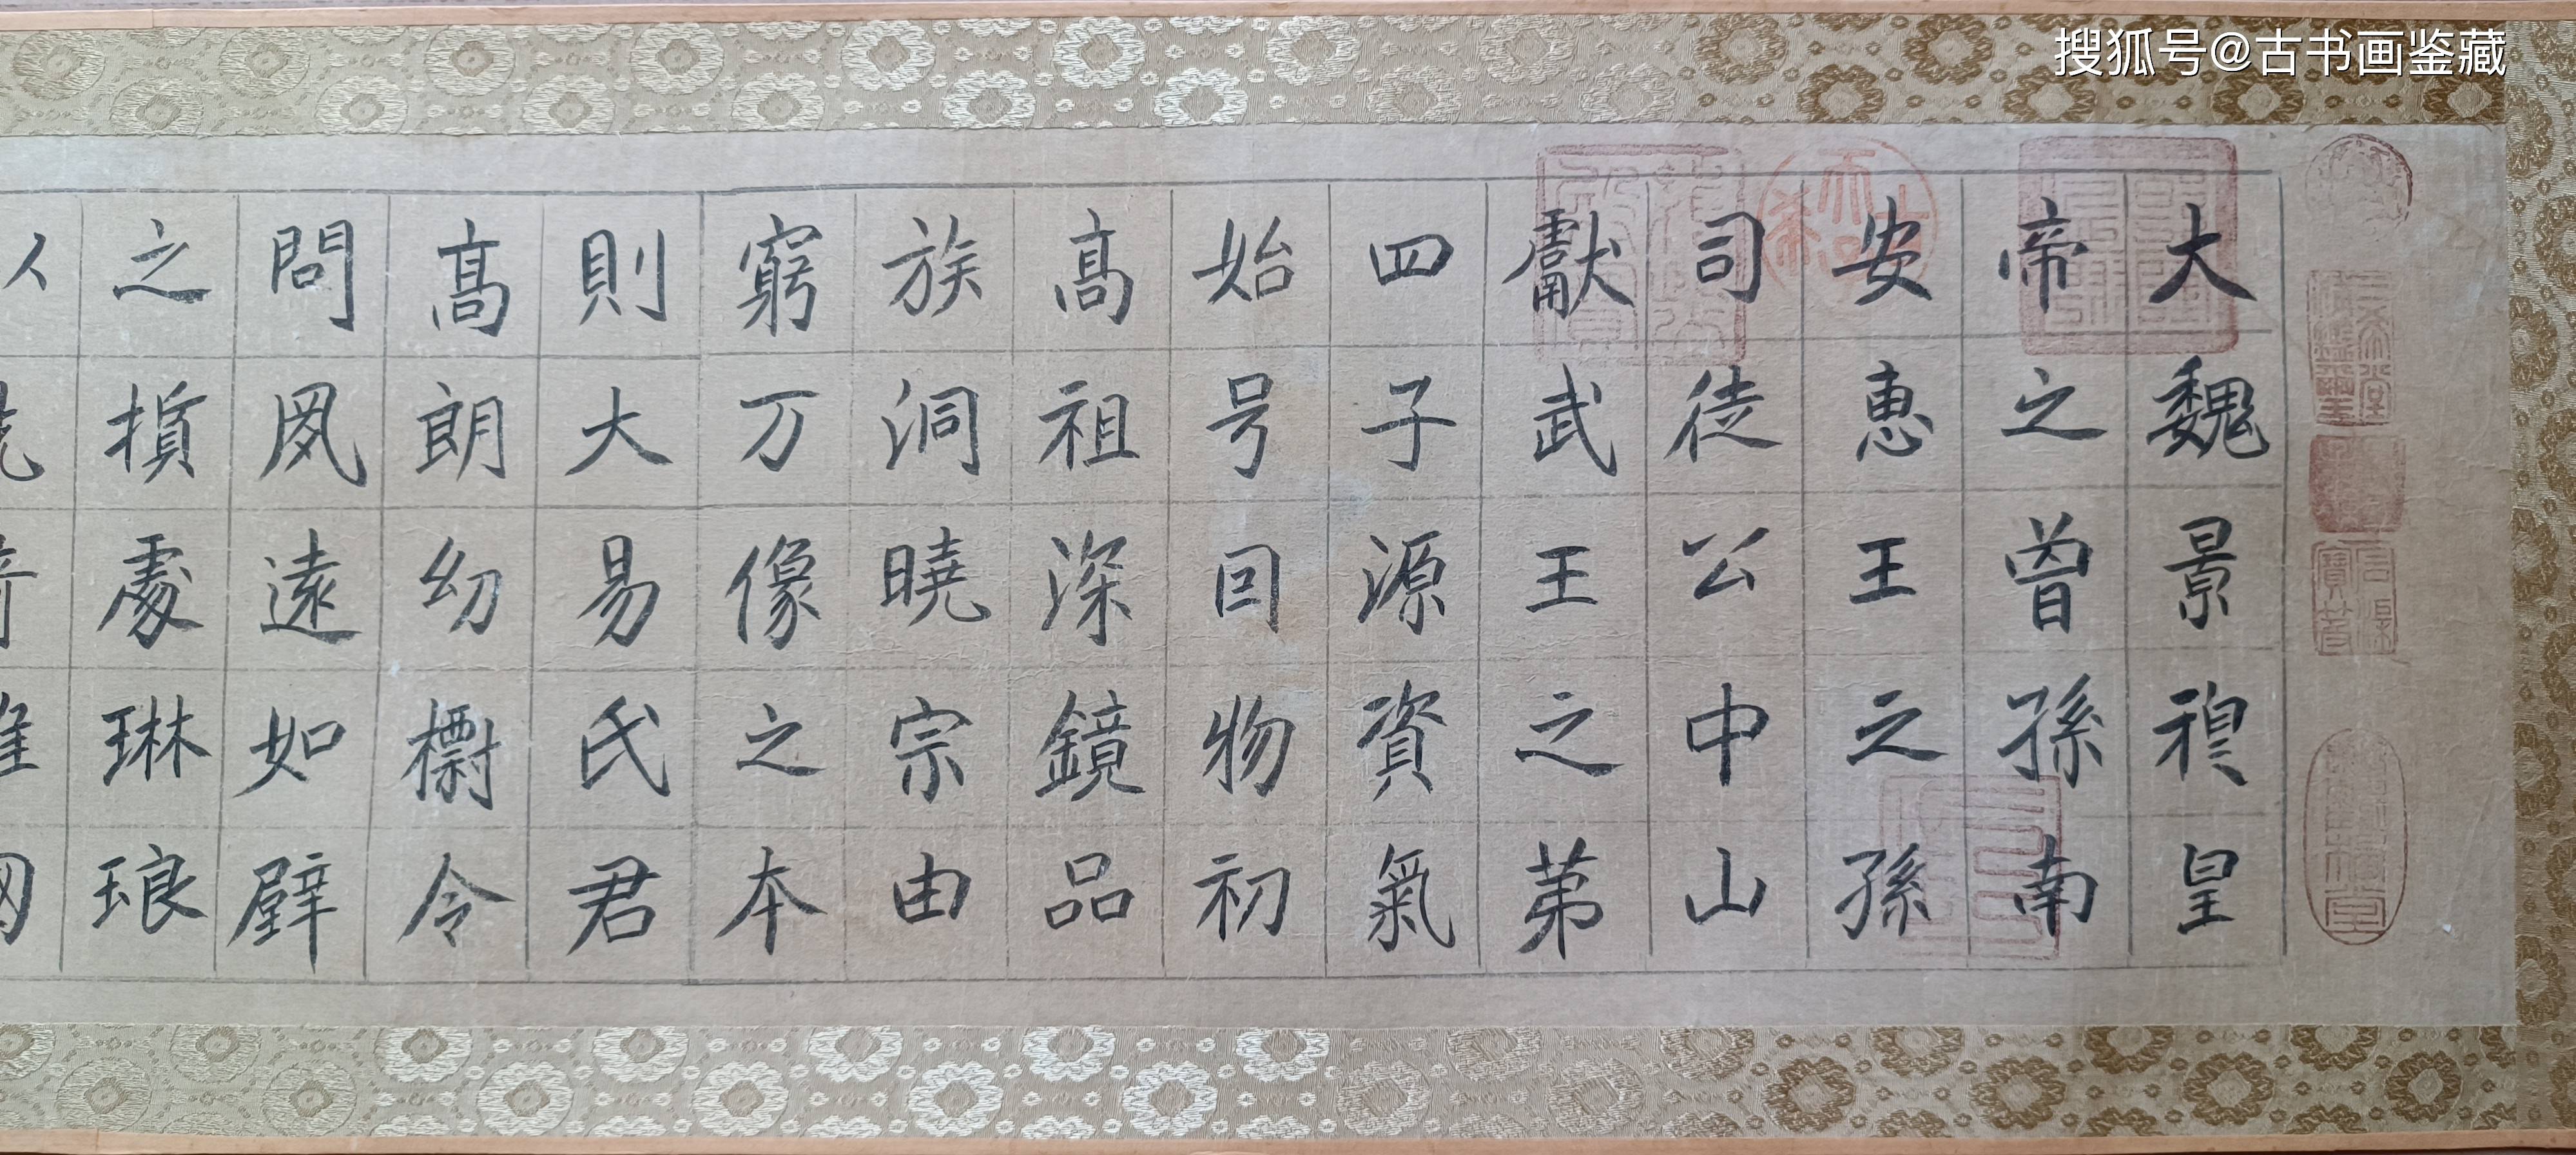 搜狐号@古书画鉴藏
大魏景穆皇
帝之曾孫南
安惠王之孫
司徒公中山
獻武王之苐
四子源資氣
始号回物初
高祖深鏡品
族洞曉宗由
窮万像之本
則大易氏君
高朗幼檦令
問夙遠如璧
之損處琳琅